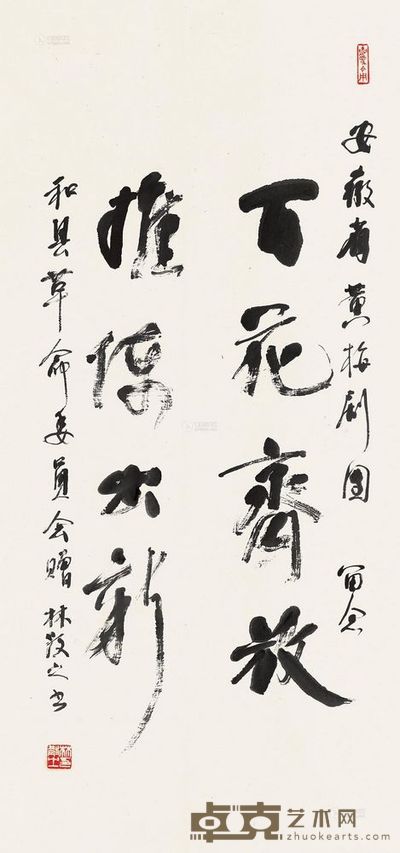 安徽省黄梅剧团 留念
百花齐放
推陈出新
和县革命委员会赠 林散之书
卓克艺术网
zhuokearts.com